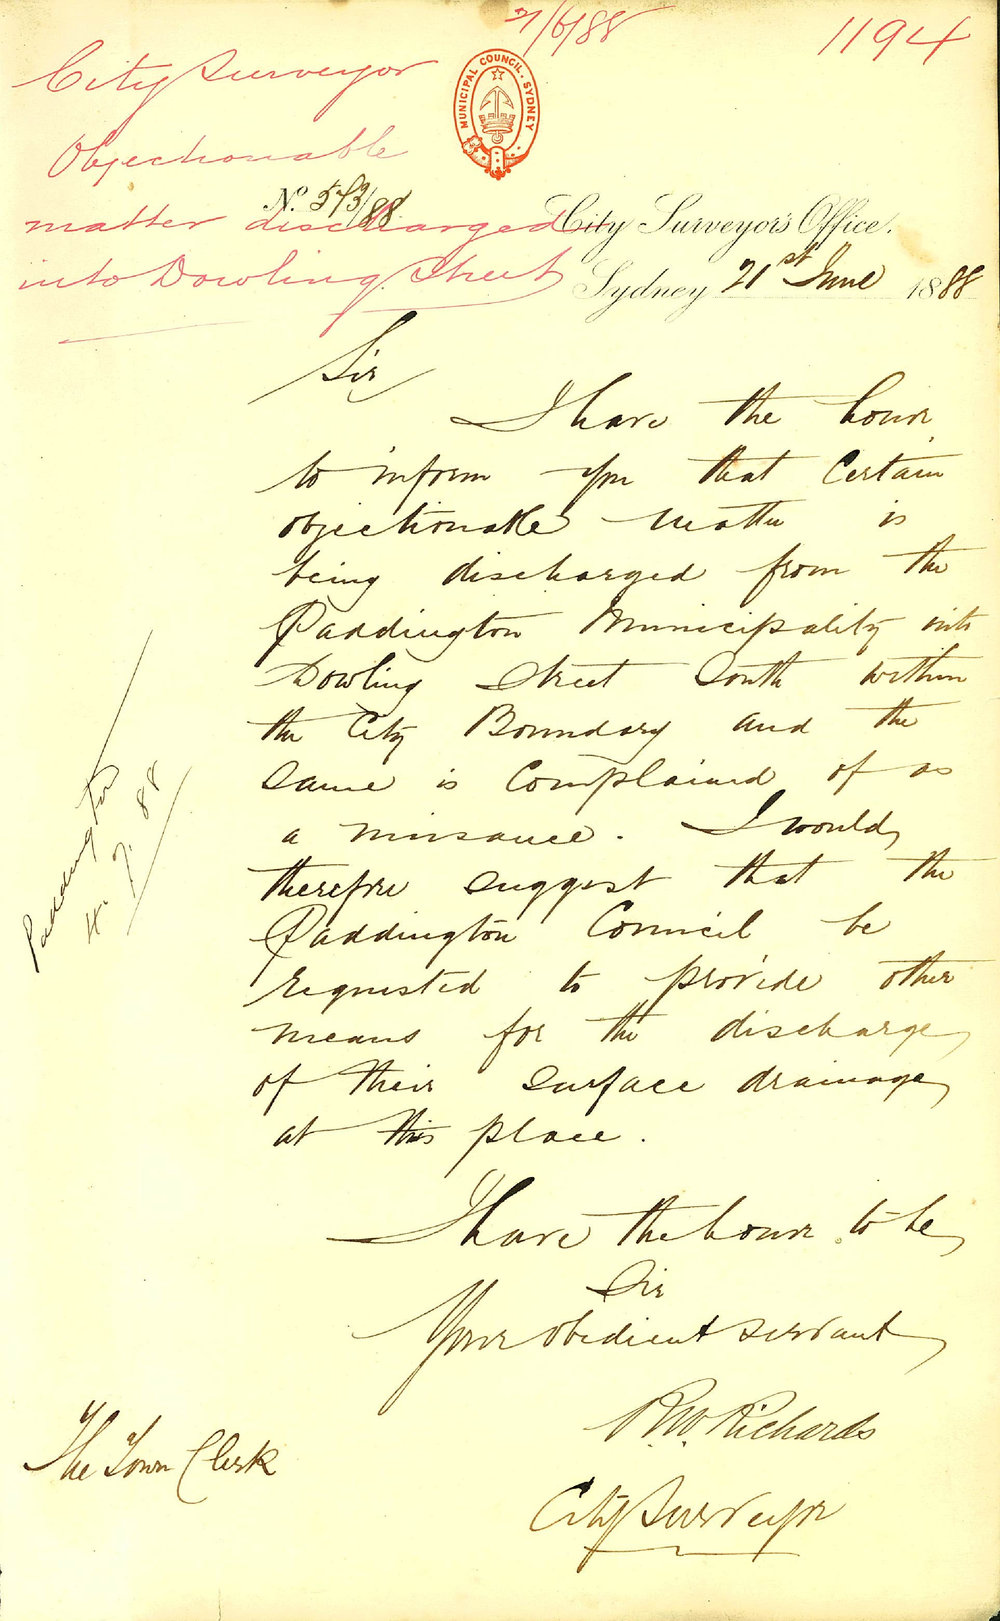 21/6/88
1194
City Surveyor
MUNICIPAL COUNCIL. SYDNEY
Objectionable
No. 573/88
matter discharged
City Surveyor's Office.
into Dowling Street
Sydney 21st June 1888
Sir
I have the honor
to inform you that certain
objectionable matter is
being discharged from the
Paddington Municipality into
Dowling Street South within
the City Boundary and the
same is complained of as
a nuisance. I would
therefore suggest that the
Paddington Council be
requested to provide other
means for the discharge
of their surface drainage
at this place.
Paddington
4. 7. 88
I have the honor to be
Sir
Your obedient servant
R.W. Richards
City Surveyor
The Town Clerk